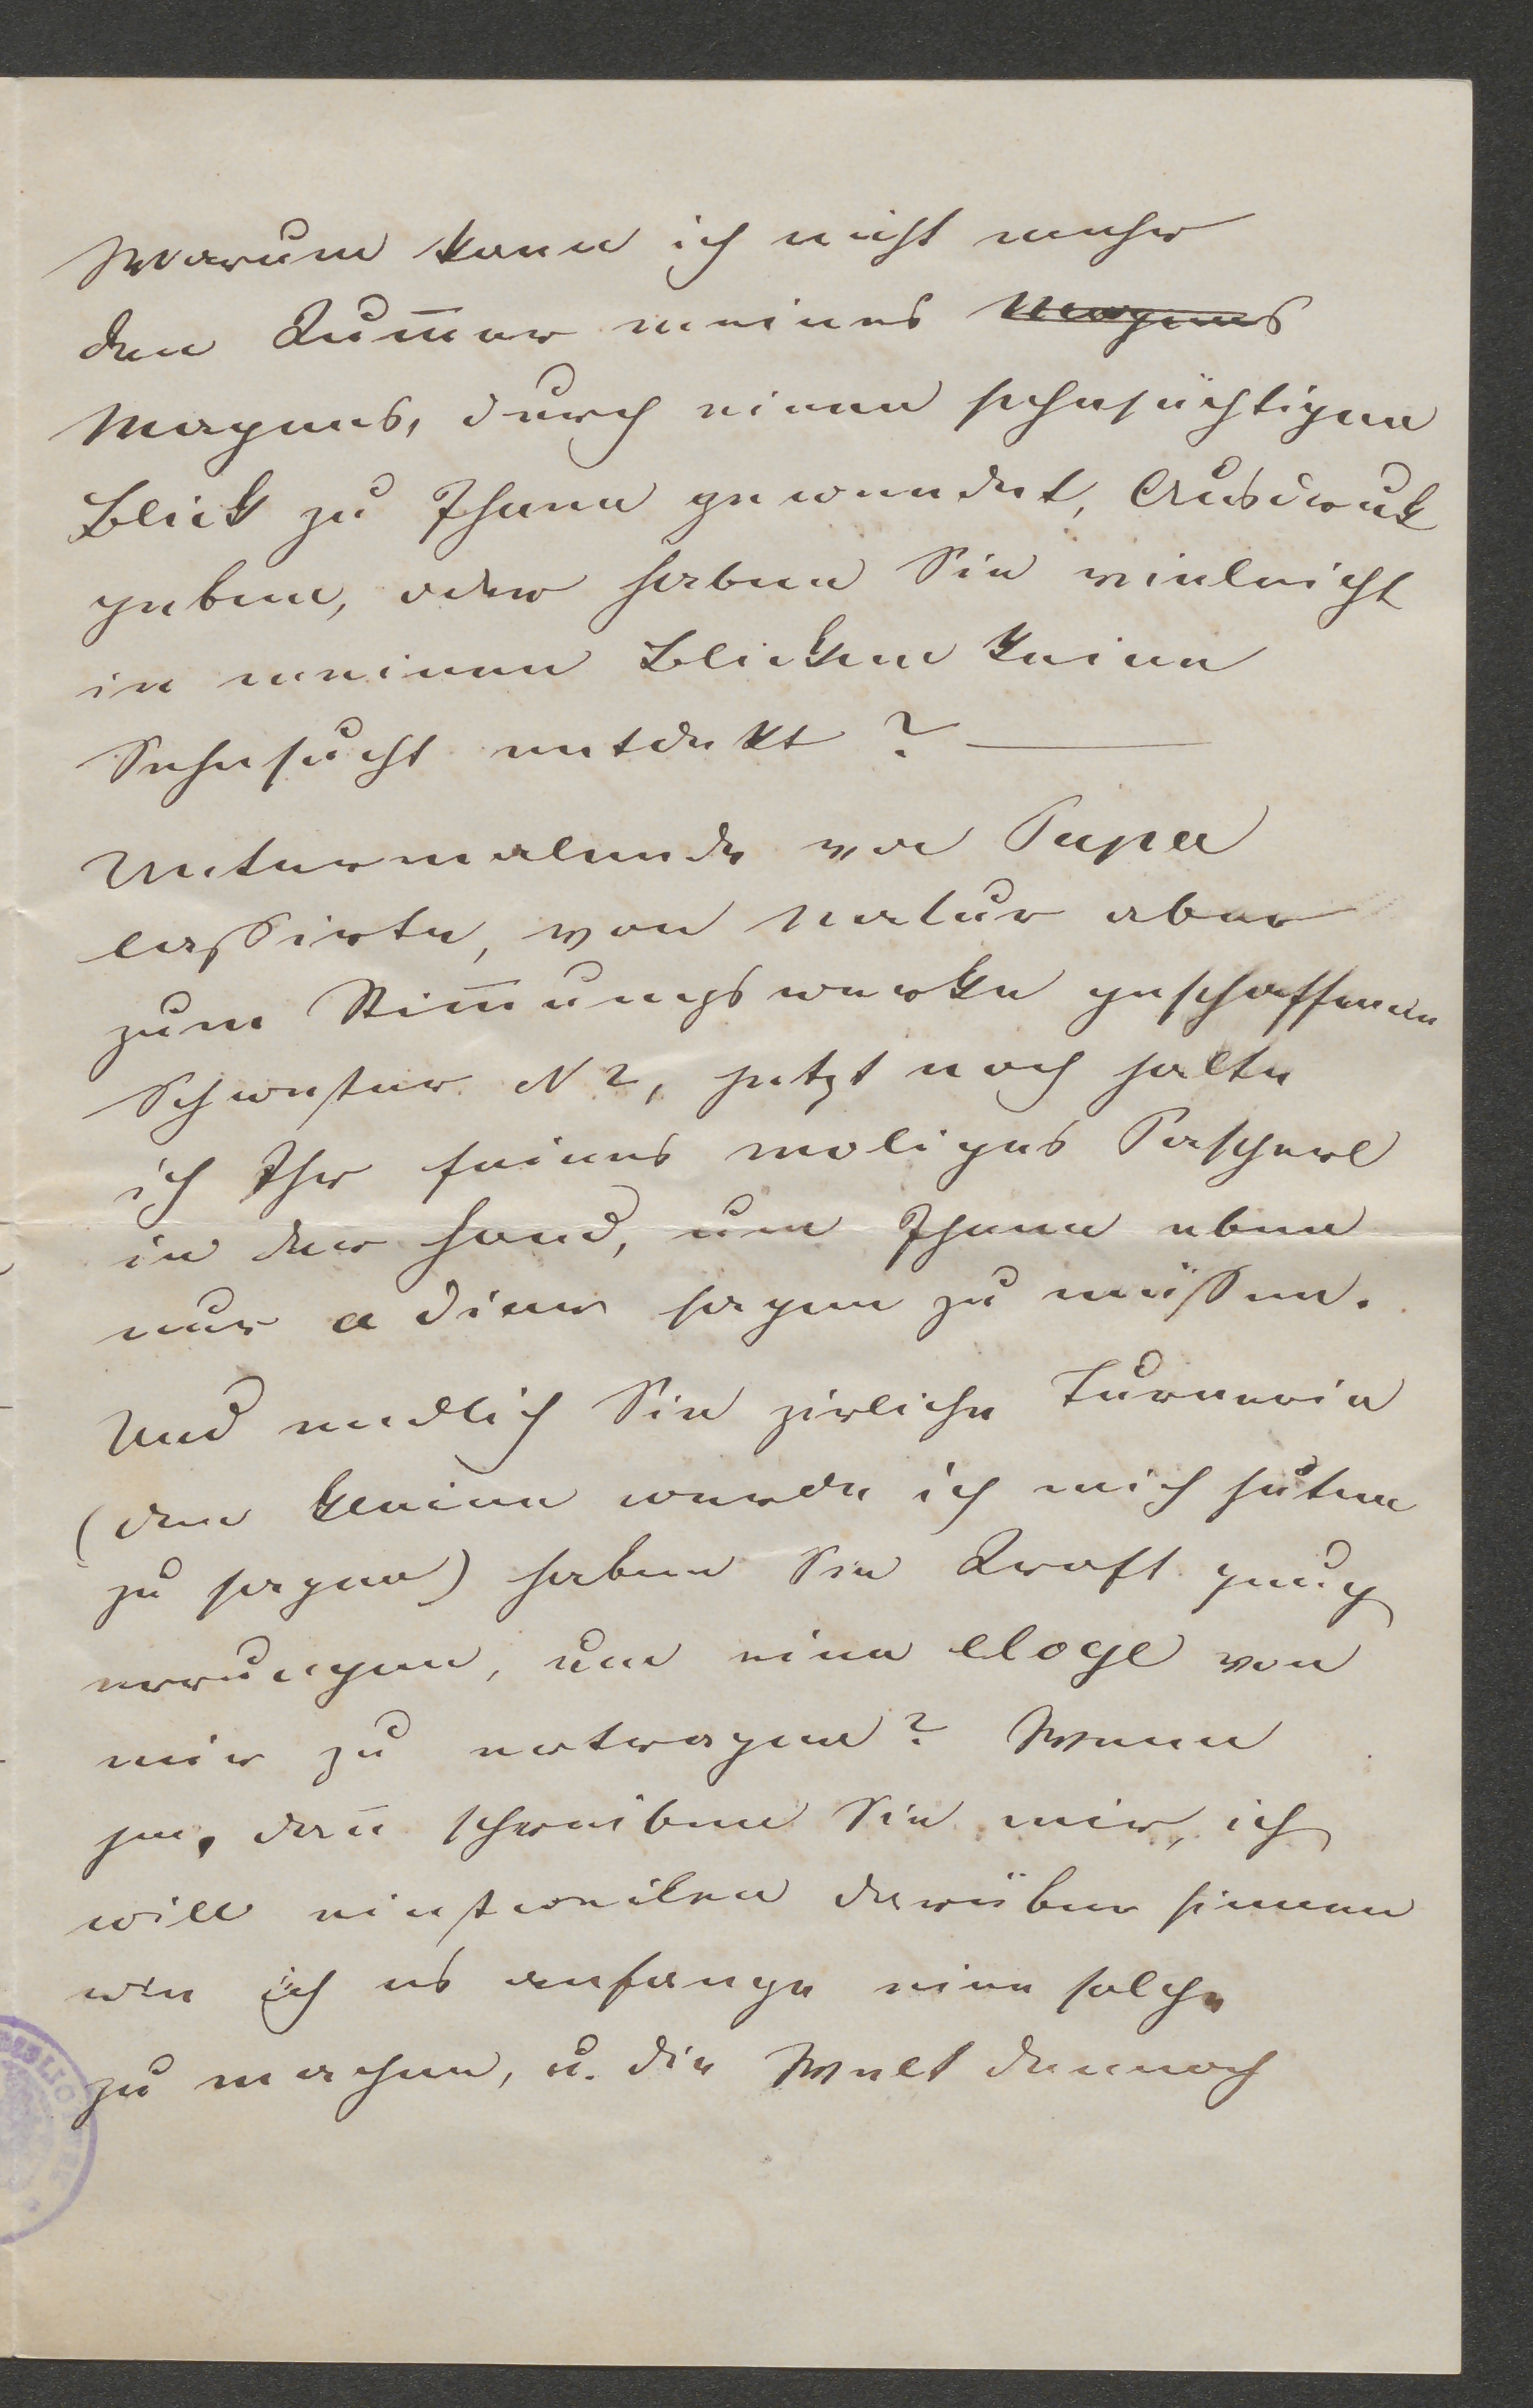 Warum kann ich nicht mehr
den Kum̅er meines Magens
Magens, durch einen sehnsüchtigen
Blick zu Ihnen gewendet, Ausdruck
geben, oder haben Sie vieleicht
in meinen Blicken keine
Sehnsucht entdekt? —
Untermalende von Papa
lassirte, von Natur aber
zum Stim̅ungswerke geschaffenen
Schwester N 2, jetzt noch halte
ich Ihr feines moliges Pascherl
in der Hand, um Ihnen eben
nur adieu sagen zu müssen.
Und endlich Sie zirliche Turnerin
(den kleinen werde ich mich hüten
zu sagen) haben Sie Kraft genug
errungen, um eine eloge von
mir zu ertragen? Wenn
ja, dan̅ schreiben Sie mir, ich
will einstweilen darüber sinnen
wie ich es anfange eine solche
zu machen, u. die Welt dennoch